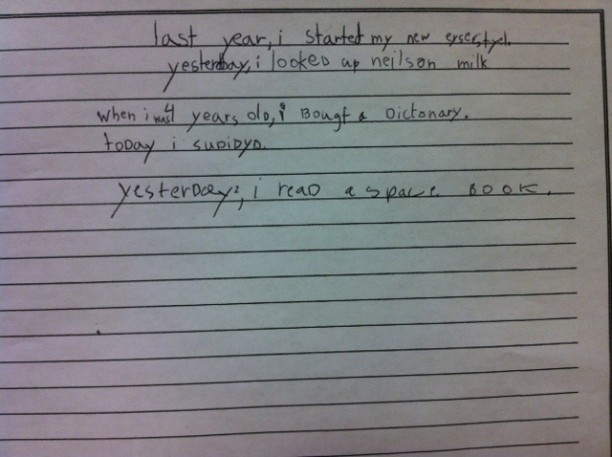 last year, i started my new
yesterday, i looked up neilson milk
when i was 4 years old, i Bougt a Dictonary.
today i
yesterday, i read a space BOOK.